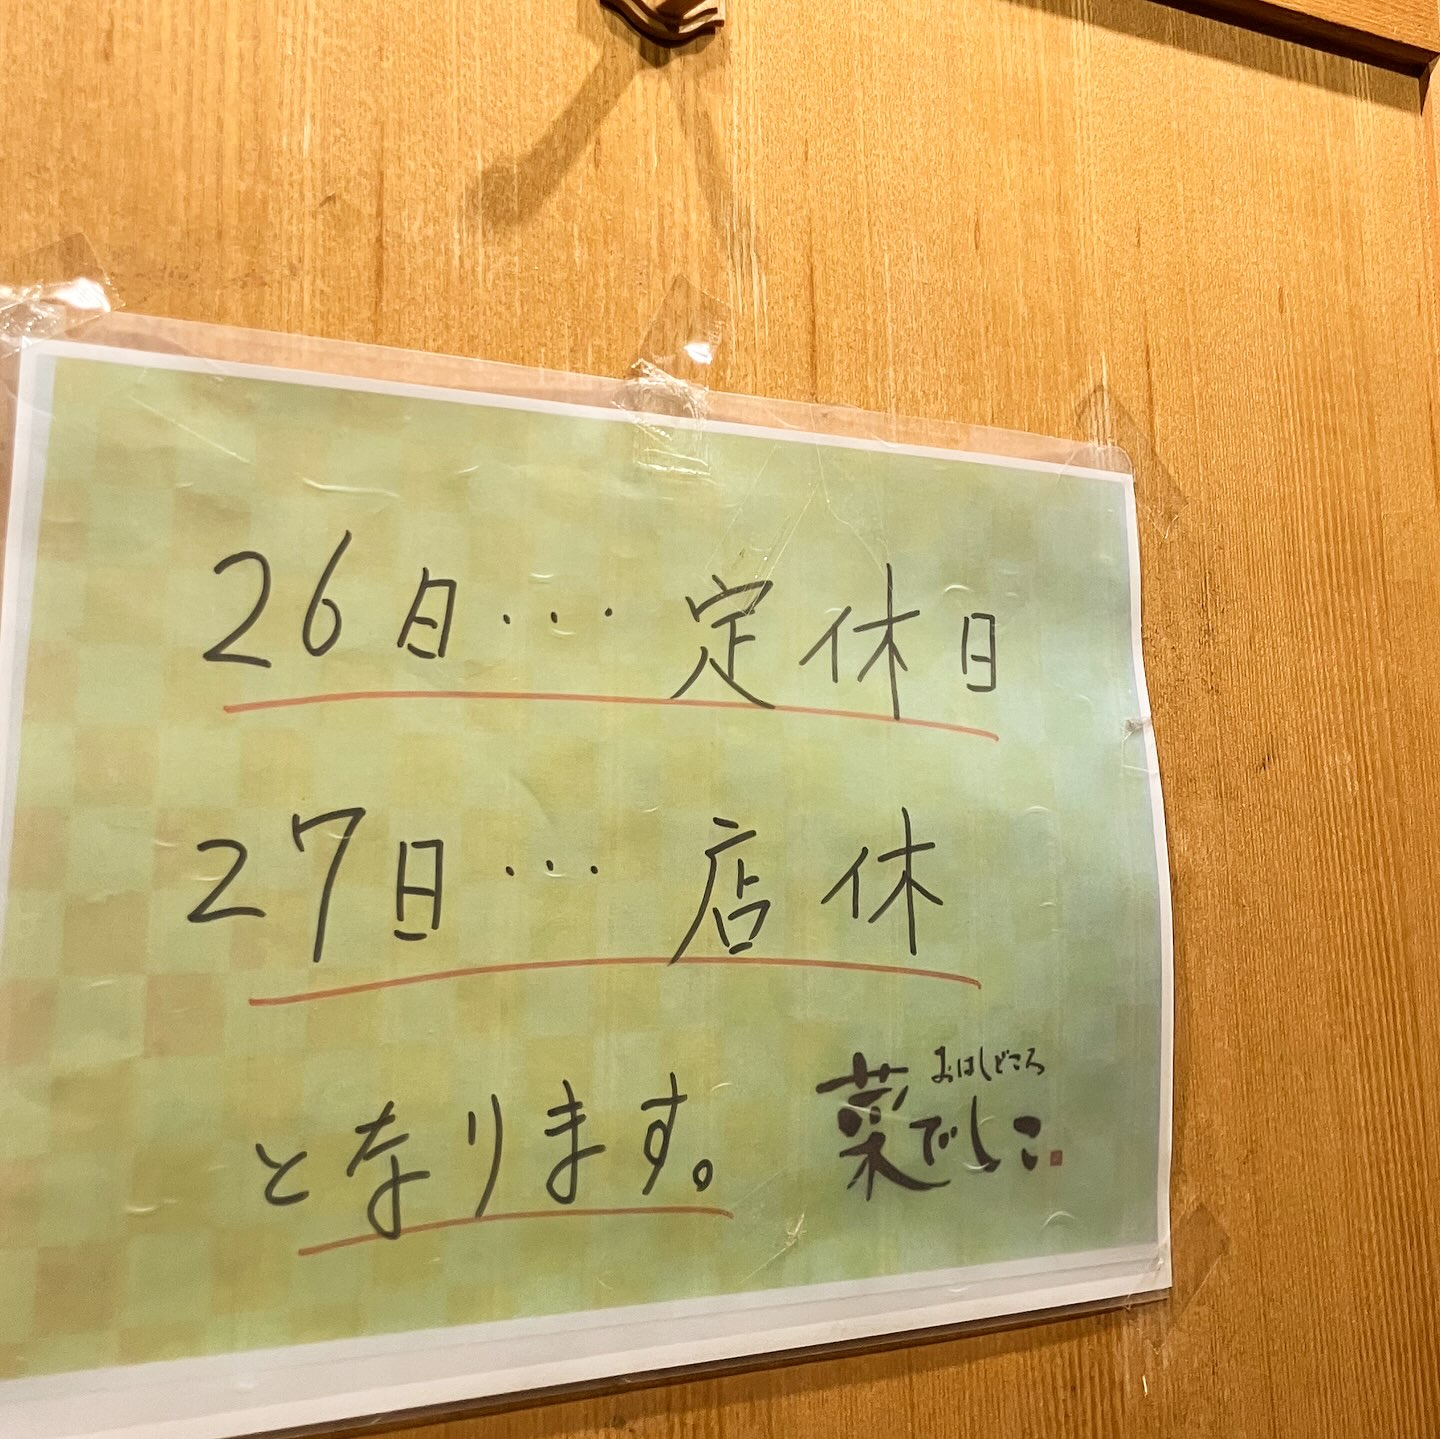 26日・・・定休日
27日・・・店休
となります。
おはしどころ
菜でしこ